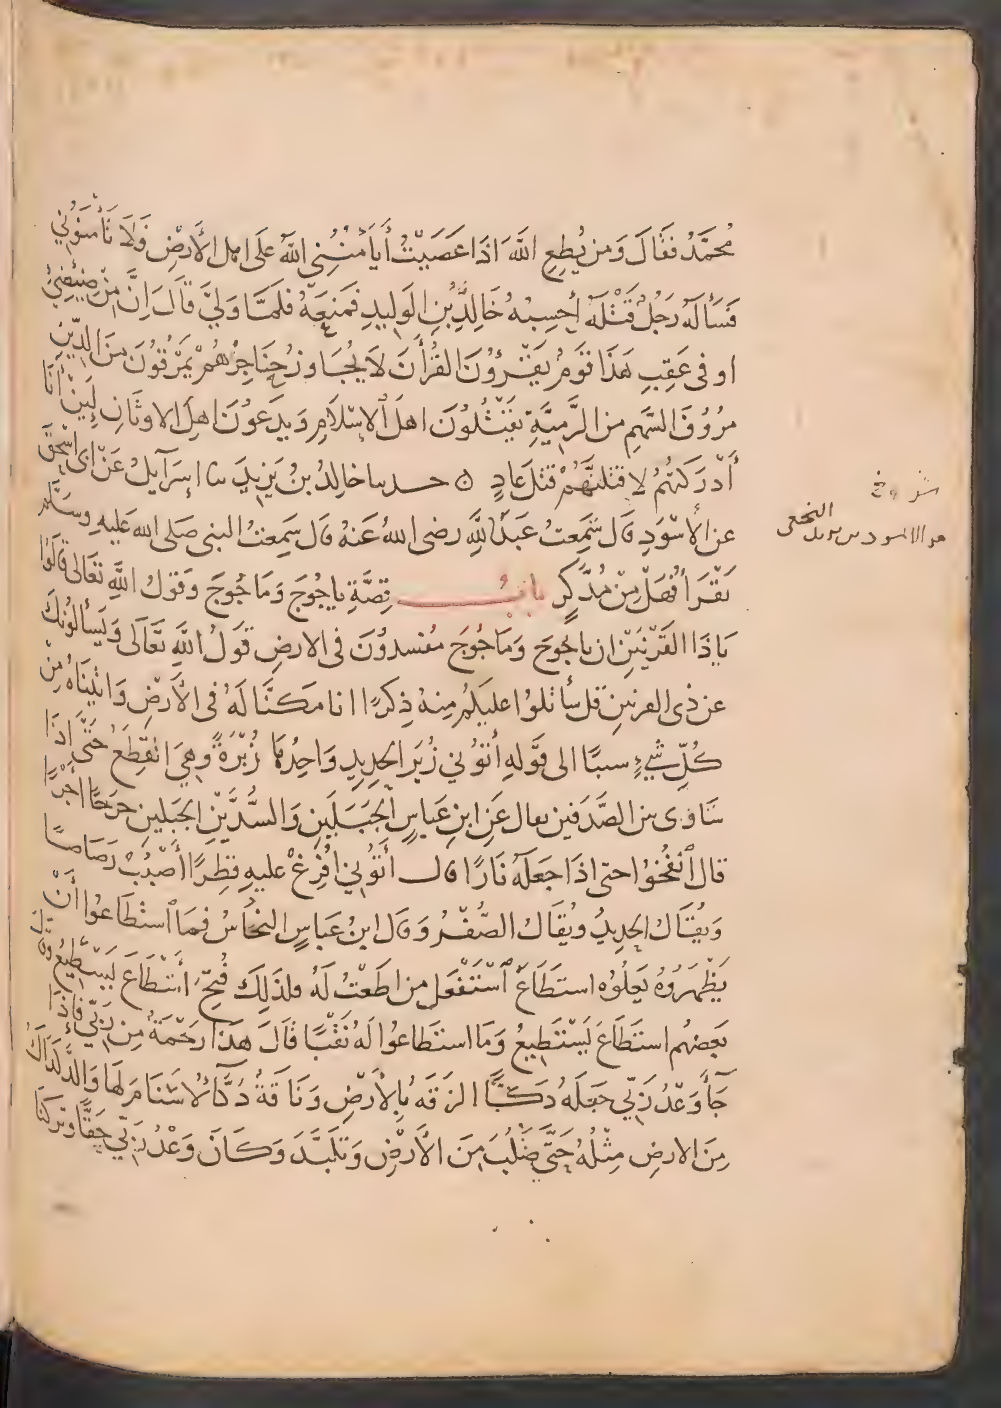 مُحَمَّدُ فَقَالَ وَمَن يُطِعِ اللَّهَ اذَا عَصَيْتُ أَيَأْمَنُنِي اللَّهُ عَلَى اهل الأَرْضِ فَلَا تَأْمَنُونِي
فَسَأَلَهُ رَجُلٌ قَتْلَهُ أَحْسِبُهُ خَالِدَ بْنَ الوَلِيدِ فَمَنَعَهُ فَلَمَّا وَلَّى قَالَ إِنَّ مِنْ ضِئْضِئِ
او فى عَقِبِ هَذَا قَوْمٌ يَقْرَؤُنَ القُرْأَنَ لَا يُجَاوِزُ حَنَاجِرَهُمْ يَمْرُقُونَ مِنَ الدِّينِ
مُرُوقَ السَّهْمِ من الرَّمِيَّةِ يَقْتُلُونَ اهلَ الإِسْلَامِ وَيَدَعُونَ اهلَ الاوثَانِ لَئِنْ أَنَا
أَدْرَكْتُهُمْ لاقتلنَّهُمْ قَتْلَ عَادٍ ۞ حدسا خالِدُ بنُ يَزِيدَ سا إِسرَآيلُ عَنْ ابى اسْحقَ
عن الأَسْوَدِ قَالَ سَمِعتُ عَبدَ اللَّهِ رضى اللهُ عَنهُ قَالَ سَمِعتُ النبى صَلى الله عَليهِ وسَلَّم
يَقْرَأُ فَهَلْ مِنْ مُدَّكِرٍ بابُ قِصَّةِ يَاجُوجَ وَمَاجُوجَ وَقَولُ اللَّهِ تَعَالى قَالُوا
يَاذَا القَرْنَيْنِ ان ياجوجَ وَمَاجُوجَ مُفسدُونَ فى الارضِ قَولُ اللَّهِ تَعَالَى وَيَسأَلُونَكَ
عن ذى القرنينِ قل سأَتلوا عليكُم مِنهُ ذِكرًا انا مَكَنَّا لَهُ فى الأَرضِ وَاتَينَاهُ مِنْ
كُلِّ شَيءٍ سببًا الى قَوْلِهِ أتُوني زُبَرَ الحَدِيدِ وَاحِدُهَا زُبْرَةٌ وهِيَ القِطَعُ حَتَّى إِذَا
سَاوَى بين الصَّدَفين يقال عَنِ ابنِ عَباسٍ الجَبَلَينِ وَالسُّدَّيْنِ الجَبَلينِ خَرْجًا أَجْرًا
قال انْفُخوا حتى اذَا جَعَلَهُ نَارًا قال أَتُوني اُفْرِغْ عليهِ قِطرًا أَصْبُبْ رَصَاصًا
وَيُقَالُ الحدِيدُ ويُقَالُ الصُّفْرُ وَقَالَ ابنُ عَبَاسٍ النحَاسُ فمَا اسْطَاعُوا أَنْ
يَظْهَرُوهُ يَعلُوهُ استَطَاعَ اسْتَفْعَلَ من اطَعْتُ لَهُ فلذَلِكَ فُتِحَ اسْطَاعَ يَسْطِيعُ وقال
بَعضُهم استَطَاعَ يَسْتَطِيعُ وَمَا استَطَاعوُا لَهُ نَقْبًا قَالَ هَذَا رَحْمَةٌ مِن رَبّي فَإِذَا
جَأَ وَعْدُ رَبِّي جَعَلَهُ دَكًّا الزَقَهُ بِالأَرْضِ وَنَاقَةٌ دَكَّاءُ لاسَنَامَ لَهَا وَالدَّكْدَاكُ
مِنَ الارضِ مِثْلُهُ حَتَّى صَلُبَ مِنَ الأَرْضِ وَتَلَبَّدَ وَكَانَ وَعْدُ رَبّي حَقًّا وتركنَا
هو الاسود بن يزيد النخعى